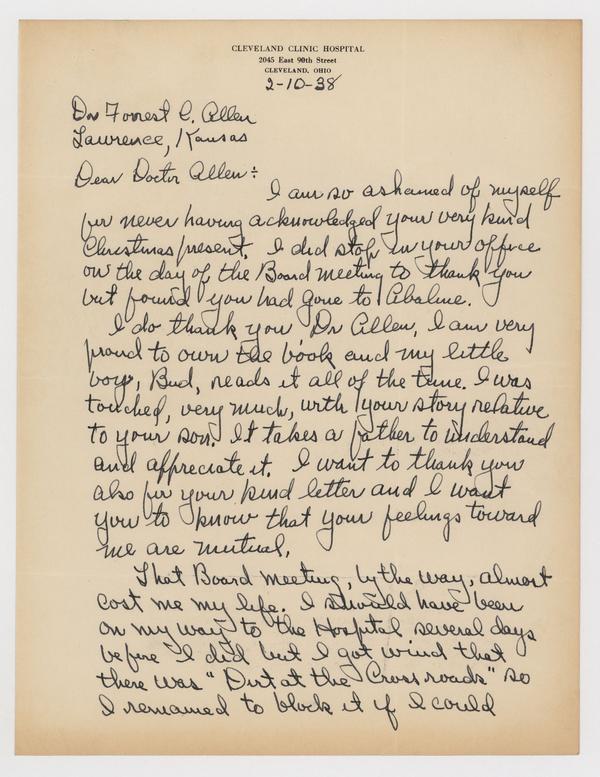 CLEVELAND CLINIC HOSPITAL
2045 East 90th Street
CLEVELAND, OHIO
2-10-38
Dr Forrest C. Allen
Lawrence, Kansas
Dear Doctor Allen:
I am so ashamed of myself
for never having acknowledged your very kind
Christmas present. I did stop in your office
on the day of the Board meeting to thank you
but found you had gone to Abaline.
I do thank you Dr Allen, I am very
proud to own the book and my little
boy, Bud, reads it all of the time. I was
touched, very much, with your story relative
to your son. It takes a father to understand
and appreciate it. I want to thank you
also for your kind letter and I want
you to know that your feelings toward
me are mutual.
That Board meeting, by the way, almost
cost me my life. I should have been
on my way to the Hospital several days
before I did but I got wind that
there was "Dirt at the Crossroads" so
I remained to block it if I could